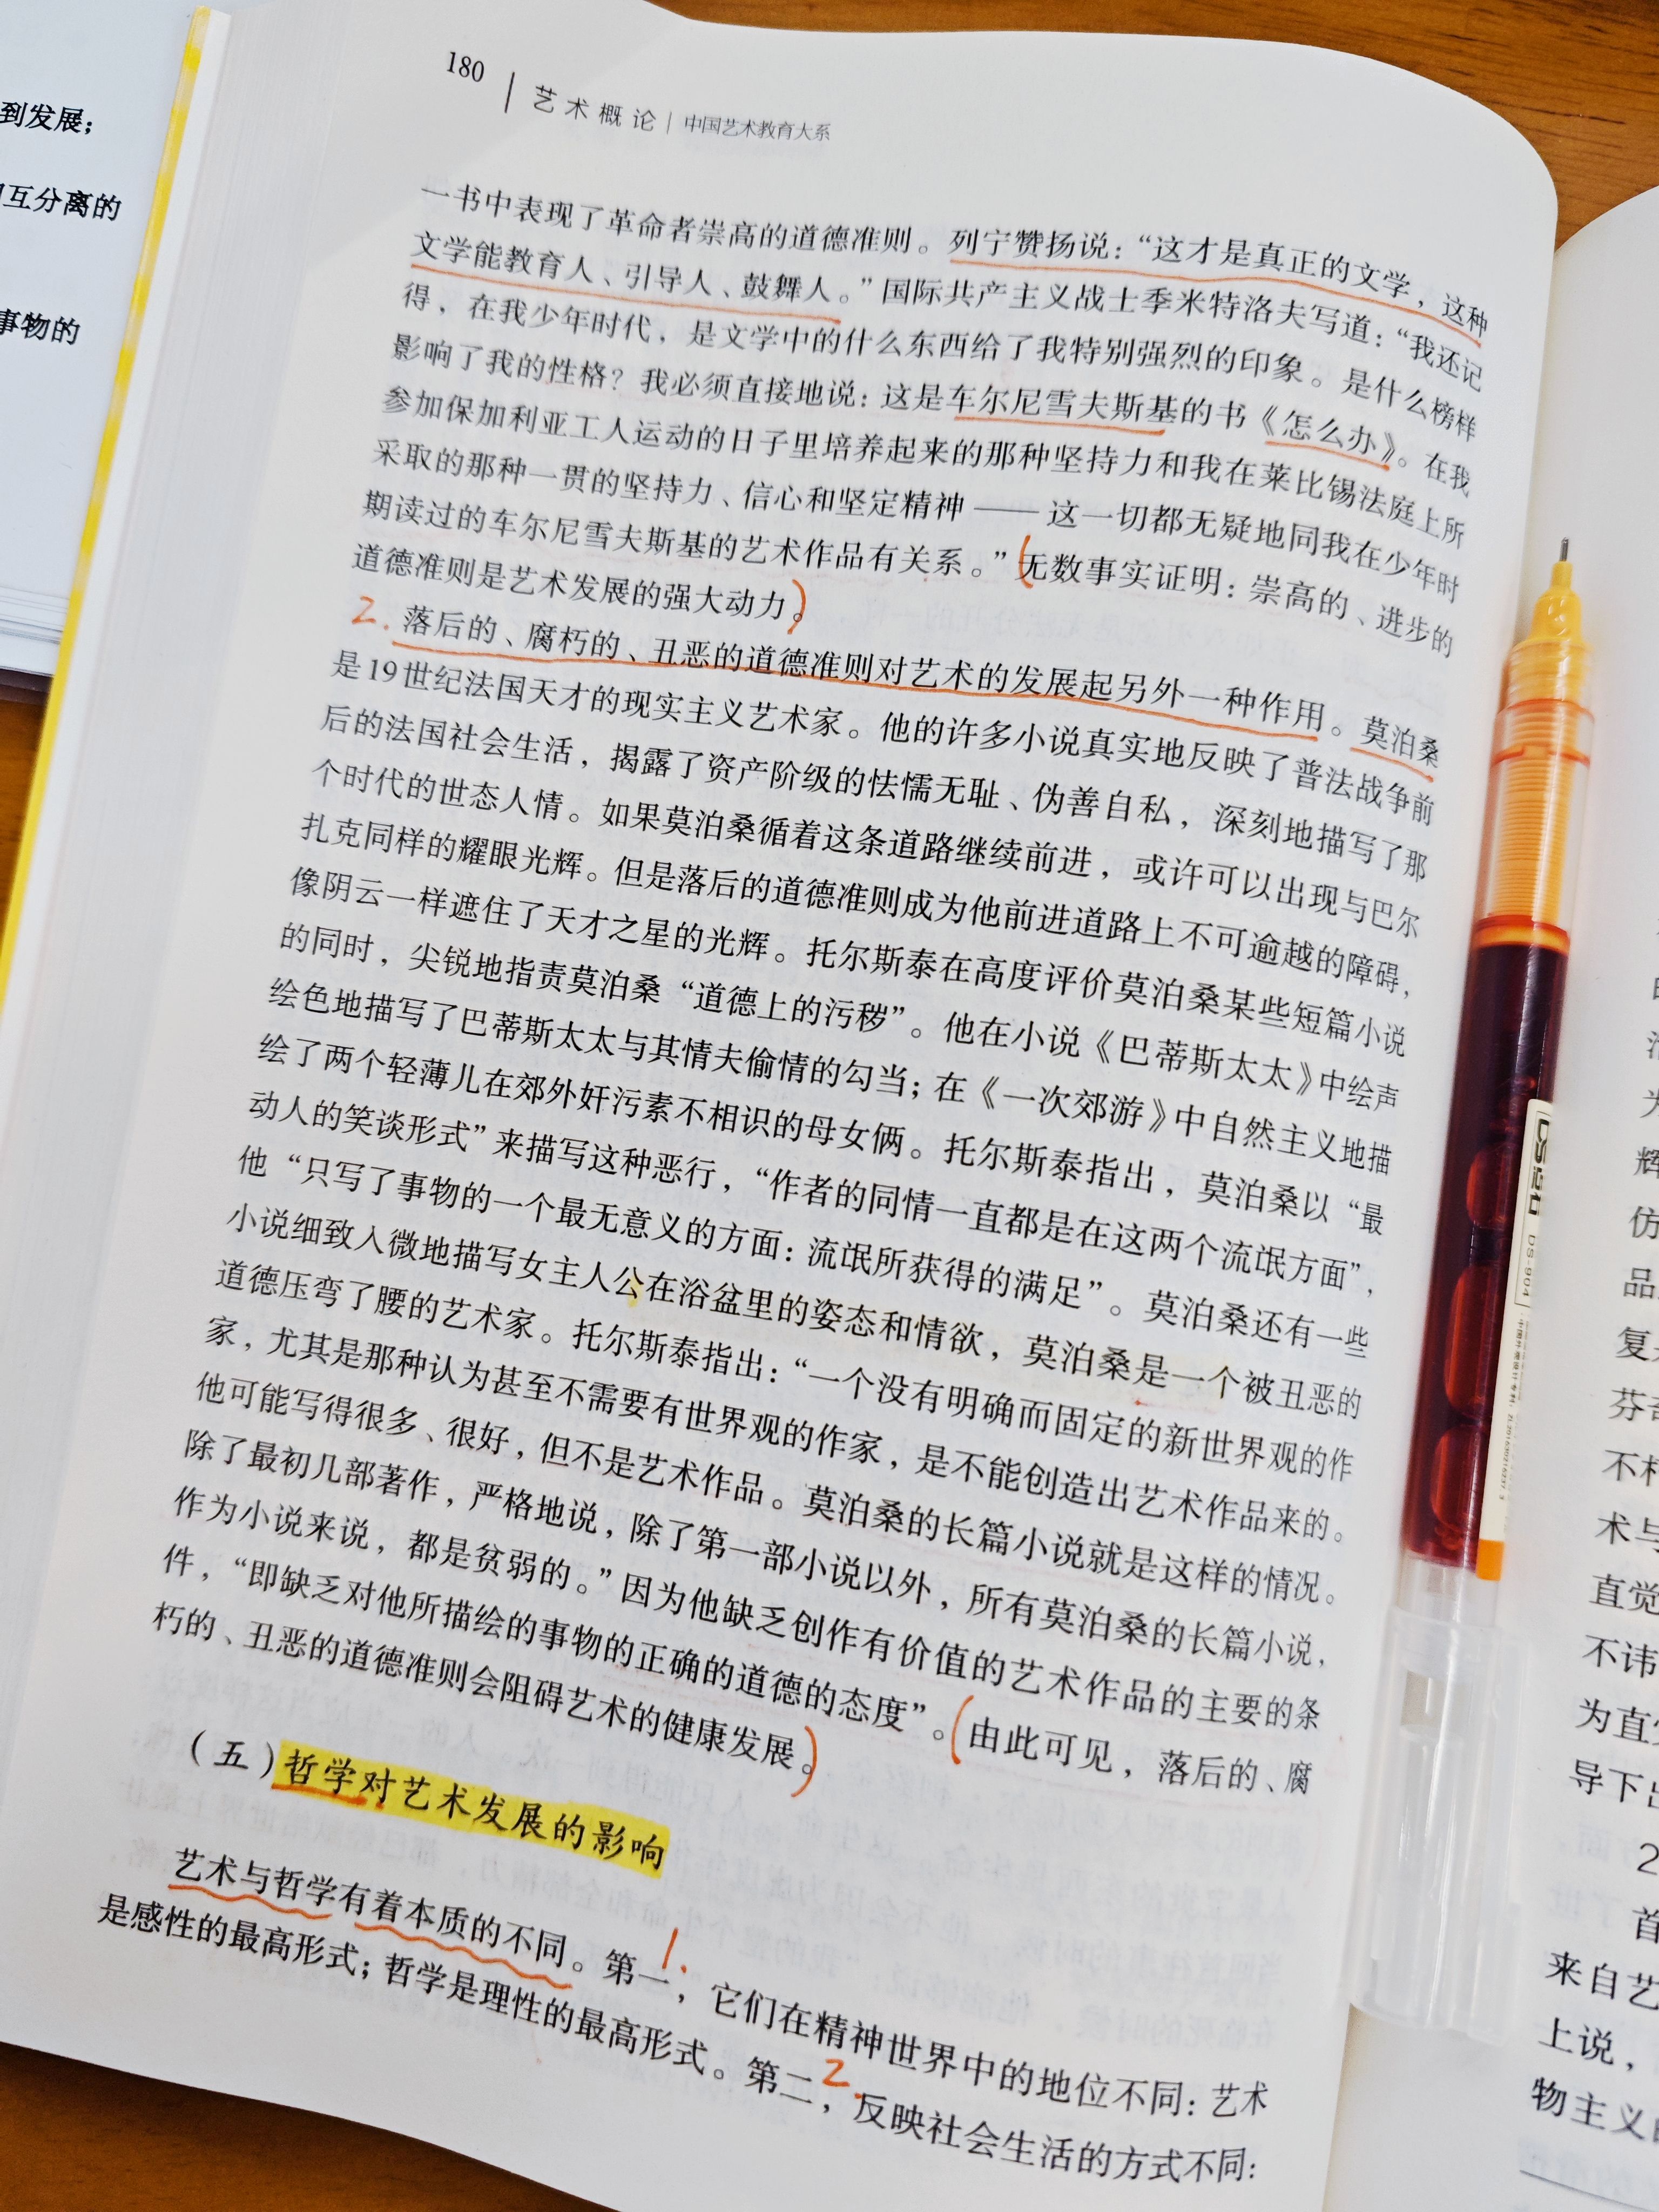 到发展；
互分离的
事物的
180
艺术概论 | 中国艺术教育大系
一书中表现了革命者崇高的道德准则。列宁赞扬说：“这才是真正的文学，这种
文学能教育人、引导人、鼓舞人。”国际共产主义战士季米特洛夫写道：“我还记
得，在我少年时代，是文学中的什么东西给了我特别强烈的印象。是什么榜样
影响了我的性格？我必须直接地说：这是车尔尼雪夫斯基的书《怎么办》。在我
参加保加利亚工人运动的日子里培养起来的那种坚持力和我在莱比锡法庭上所
采取的那种一贯的坚持力、信心和坚定精神——这一切都无疑地同我在少年时
期读过的车尔尼雪夫斯基的艺术作品有关系。”（无数事实证明：崇高的、进步的
道德准则是艺术发展的强大动力。）
2. 落后的、腐朽的、丑恶的道德准则对艺术的发展起另外一种作用。莫泊桑
是19世纪法国天才的现实主义艺术家。他的许多小说真实地反映了普法战争前
后的法国社会生活，揭露了资产阶级的怯懦无耻、伪善自私，深刻地描写了那
个时代的世态人情。如果莫泊桑循着这条道路继续前进，或许可以出现与巴尔
扎克同样的耀眼光辉。但是落后的道德准则成为他前进道路上不可逾越的障碍，
像阴云一样遮住了天才之星的光辉。托尔斯泰在高度评价莫泊桑某些短篇小说
的同时，尖锐地指责莫泊桑“道德上的污秽”。他在小说《巴蒂斯太太》中绘声
绘色地描写了巴蒂斯太太与其情夫偷情的勾当；在《一次郊游》中自然主义地描
绘了两个轻薄儿在郊外奸污素不相识的母女俩。托尔斯泰指出，莫泊桑以“最
动人的笑谈形式”来描写这种恶行，“作者的同情一直都是在这两个流氓方面”，
他“只写了事物的一个最无意义的方面：流氓所获得的满足”。莫泊桑还有一些
小说细致入微地描写女主人公在浴盆里的姿态和情欲，莫泊桑是一个被丑恶的
道德压弯了腰的艺术家。托尔斯泰指出：“一个没有明确而固定的新世界观的作
家，尤其是那种认为甚至不需要有世界观的作家，是不能创造出艺术作品来的。
他可能写得很多、很好，但不是艺术作品。莫泊桑的长篇小说就是这样的情况。
除了最初几部著作，严格地说，除了第一部小说以外，所有莫泊桑的长篇小说，
作为小说来说，都是贫弱的。”因为他缺乏创作有价值的艺术作品的主要的条
件，“即缺乏对他所描绘的事物的正确的道德的态度”。（由此可见，落后的、腐
朽的、丑恶的道德准则会阻碍艺术的健康发展。）
（五）哲学对艺术发展的影响
艺术与哲学有着本质的不同。第一，它们在精神世界中的地位不同：艺术
1.
是感性的最高形式；哲学是理性的最高形式。第二，反映社会生活的方式不同：
2.
DS-904
辉
仿
品
复
芬奇
不朽
术与
直觉
不讳
为直觉
导下出
2
首
来自艺
上说，
物主义的